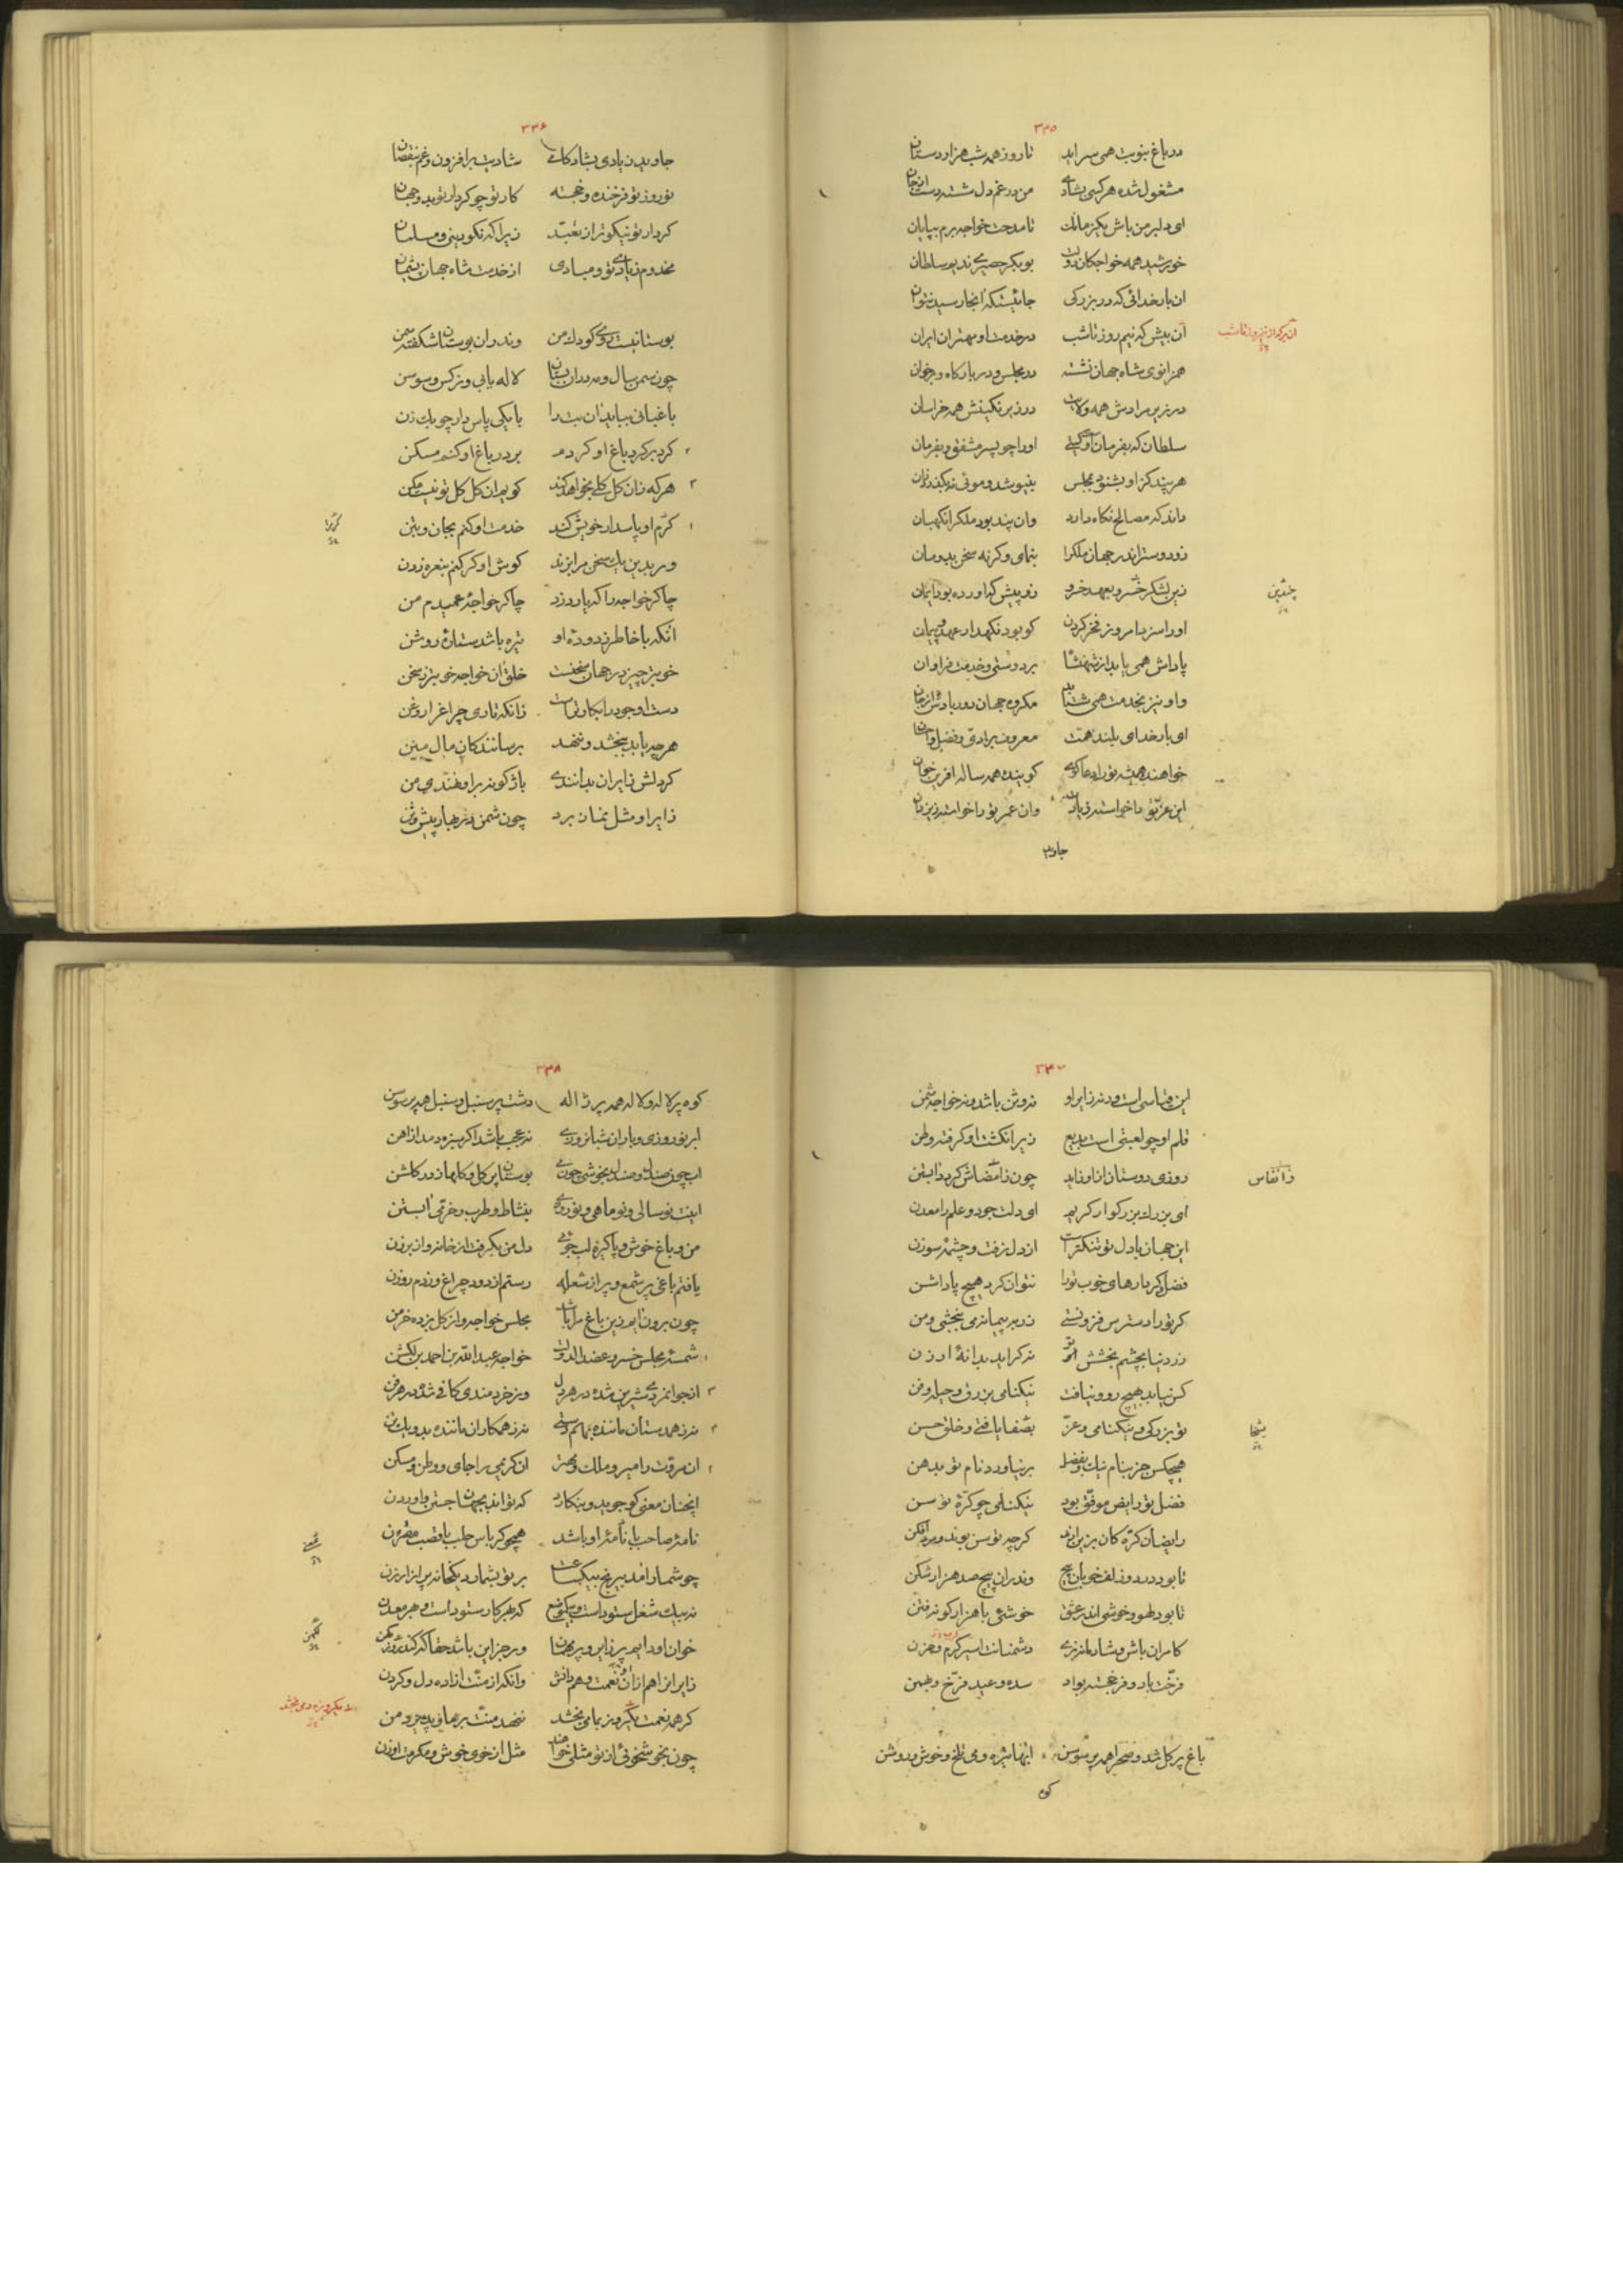 ۳۳۵
در باغ بنوبت همی سراید تا روز همه شب هزاردستان
مشغول شده هر کسی بشادی من در غم دل شسته دست از جان
ای دلبر من باش یکزمانک تا مدحت خواجه برم بپایان
خورشید همه خواجکان دولت بوبکر حصیری ندیم سلطان
ان بار خدائی که در بزرکی جائیستکه انجا رسید نتوان
آن بیش که نیم روز تا شب در خدمت او مهتران ایران
همزانوی شاه جهان نشسته در مجلس و در بارکاه و بر خوان
در زیر مرادش همه ولایت در زیر نکینش همه خراسان
سلطان که بفرمان اوست کیتی او را چو پسر مشفق و بفرمان
هر پند کز او بشنود بمجلس بنیوشد و موئی نکذرد زان
داند که مصالح نکاه دارد وان پند بود ملک را نکهبان
زو دوستر اندر جهان ملک را بنمای و کرنه سخن بدو مان
زین لشکر خسرو بعهد خسرو زو پیش که اورده بود ایمان
چندین
او را سزد امروز فخر کردن کو بود نکهدار عهد و پیمان
پاداش همی یابد از شهنشاه بر دوستی و خدمت فراوان
واو نیز بخدمت همی شتابد مکروه جهان دور بادش از جان
ای بار خدای بلند همت معروف برادی و فضل و احسان
خواهنده همیشه ترا دعا کوی کوینده همه ساله افرین خوان
این عز تو را خواسته ز یزدان وان عمر تو را خواسته ز یزدان
جاوید
۳۳۶
جاویدن بادی بشادکامی شادیت برافزون و غم بنقصان
نوروز تو فرخنده و خجسته کار تو چو کردار تو بدو جهان
کردار تو نیکوتر از تعبد زیرا که نکودینی و مسلمان
مخدوم زیادی تو و مبادی از خدمت شاه جهان پشیمان
بوستانیست روی کودک من وندر ان بوستان شکفته سمن
چون سمن سال و مه در ان بستان لاله یابی و نرکس و سوسن
باغبانی بباید ان بت را بایکی پاس دار چوبک زن
کرد بر کرد باغ او کردم بر در باغ او کنم مسکن
هر که زان کل کلی بخواهد کند کویم ان کل کل تو نیست مکن
کرم او پاسدار خویش کند خدمت او کنم بجان و بتن
ور بدین یک سخن مرا بزند کوش او کر کنم بنعره زدن
چاکر خواجه را که یارد زد چاکر خواجه عمیدم من
انکه با خاطر زدوده او تیره باشد ستاره روشن
خوبتر چیز در جهان سخنست خلق ان خواجه خوبتر ز سخن
دست او جود را بکارترست زانکه تاری چراغ را روغن
هر چه یابد ببخشد و نهد برسانندکان مال مهین
کر دلش زایران بدانندی باز کویند بر او فتدی من
زایر او مثل نماز برد چون شمن در بهار پیش وثن
۳۳۷
این قیاسی است ورنه زایر او نه وثن باشد و نه خواجه شمن
قلم او چو لعبتی است بدیع زیر انکشت او کرفته وطن
روزی دوستان از او زاید چون ز امضاش کردد ابستن
ای بزرک بزرکوار کریم ای دلت جود و علم را معدن
این جهان با دل تو تنکترست از دل زفت و چشمه سوزن
فضل کردارهای خوب تو را نتوان کرد هیچ پاداشن
کر تو را دسترس فزونستی زر به پیمانه می ببخشی و من
زر دنیا بچشم بخشش تو نه کراید بدانه ارزن
کس نیابد بهیچ روو نیافت نیکنامی بزرق و حیله و فن
تو بزرکی و نیکنامی و عز بصفا یافتی و خلق حسن
بسخا
هیچکس جز بنام نیک و بفضل برنیاورد نام تو بدهن
فضل تو رایض موفق بود نیکنامی چو کره توسن
رایضان کره کان بزین ارند کرچه توسن بوند و مردافکن
تا بود در دو زلف خوبان پیچ وندران پیچ صد هزار شکن
تا بود لهو و خوشی اندر عشق خوشئی با هزار کونه فتن
کامران باش و شادمانه بزی دشمنانت اسیر کرم و حزن
فرخت باد و فر خجسته بواد سده و عید فرخ و بهمن
باغ پر کل شد و صحرا همه پر سوسن ابها تیره و می تلخ و خوش و روشن
کوه
۳۳۸
کوه پر لاله و لاله همه پر ژاله دشت پر سنبل و سنبل همه پر سوسن
ابر نوروزی و باران شبانروزی نه عجب باشد اکر سبزه دمد از اهن
اب چون صندل و صندل بخوشی چون می بوستان پر کل و کلها ز در کلشن
اینت نوسالی و نوماهی و نوروزی بنشاط و طرب و خرمی ابستن
من و باغ خوش و پاکیزه لب جوئی دل من بکرفت از خانه و از برزن
یافتم باغی پر شمع و پر از شعله رستم از دود چراغ و ز دم روزن
چون برون ایم زین باغ مرا باشد مجلس خواجه و از کل بزده خرمن
شمسه مجلس خسرو عضد الدوله خواجه عبدالله بن احمد بن لکشن
ان جوانمردی شیرین شده در هر دل وز خردمندی کافی شده در هر فن
نه ز همدستان ماننده بهم دستی نه ز همکاران ماننده بدو یک تن
ان مروت را میر و ملک و مهتر ان کریمی را جای و وطن و مسکن
انچنان معنی کو جوید و بنکارد که تواند بجهان جستن و اوردن
نامه صاحب با نامه او باشد همچو کرباس حلب با قصب مقرون
چو شمار افتد بیرنج بیکساعت بر تو بشمارد یکخانه پر از ارزن
نه بیک شغل ستوده است و بیک موضع که بهر کار ستوده است و بهر معدن
خوان او دایم پر زایر و پر مهمان ور جز این باشد حقا که کند شیون
زایران را هم از ان نعمت و هم دانش وانکه از منت ازاده دل و کردن
کر همه نعمت یکروز بما بخشد ننهد منت بر ما و پذیرد من
چون بخوشخوئی از تو مثلی خواهند مثل از خوی خوش و مکرمت او زن